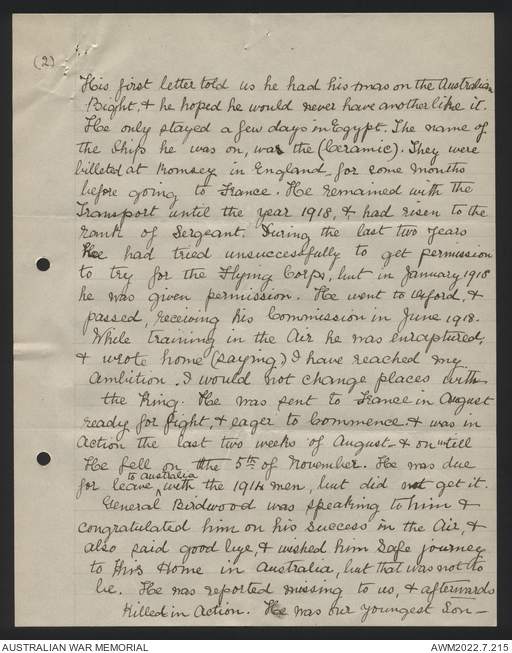 (2)
His first letter told us he had his Xmas on the Australian
Bight, & he hoped he would never have another like it.
He only stayed a few days in Egypt. The name of
the Ship he was on, was the (Ceramic). They were
billeted at Romsey in England, for some months
before going to France. He remained with the
Transport until the year 1918, & had risen to the
rank of Sergeant. During the last two years
He had tried unsuccessfully to get permission
to try for the Flying Corps, but in January 1918
he was given permission. He went to Oxford, &
passed, receiving his Commission in June 1918.
While training in the Air he was enraptured,
& wrote home (saying) I have reached my
ambition. I would not change places with
the King. He was sent to France in August
ready for fight, & eager to commence & was in
Action the last two weeks of August - & on till
He fell on the 5th of November. He was due
for leave to Australia with the 1914 men, but did not get it.
General Birdwood was speaking to him &
congratulated him on his success in the Air, &
also said good bye, & wished him safe journey
to His Home in Australia, but that was not to
be. He was reported missing to us, & afterwards
Killed in Action. He was our youngest Son -
AUSTRALIAN WAR MEMORIAL
AWM2022.7.215